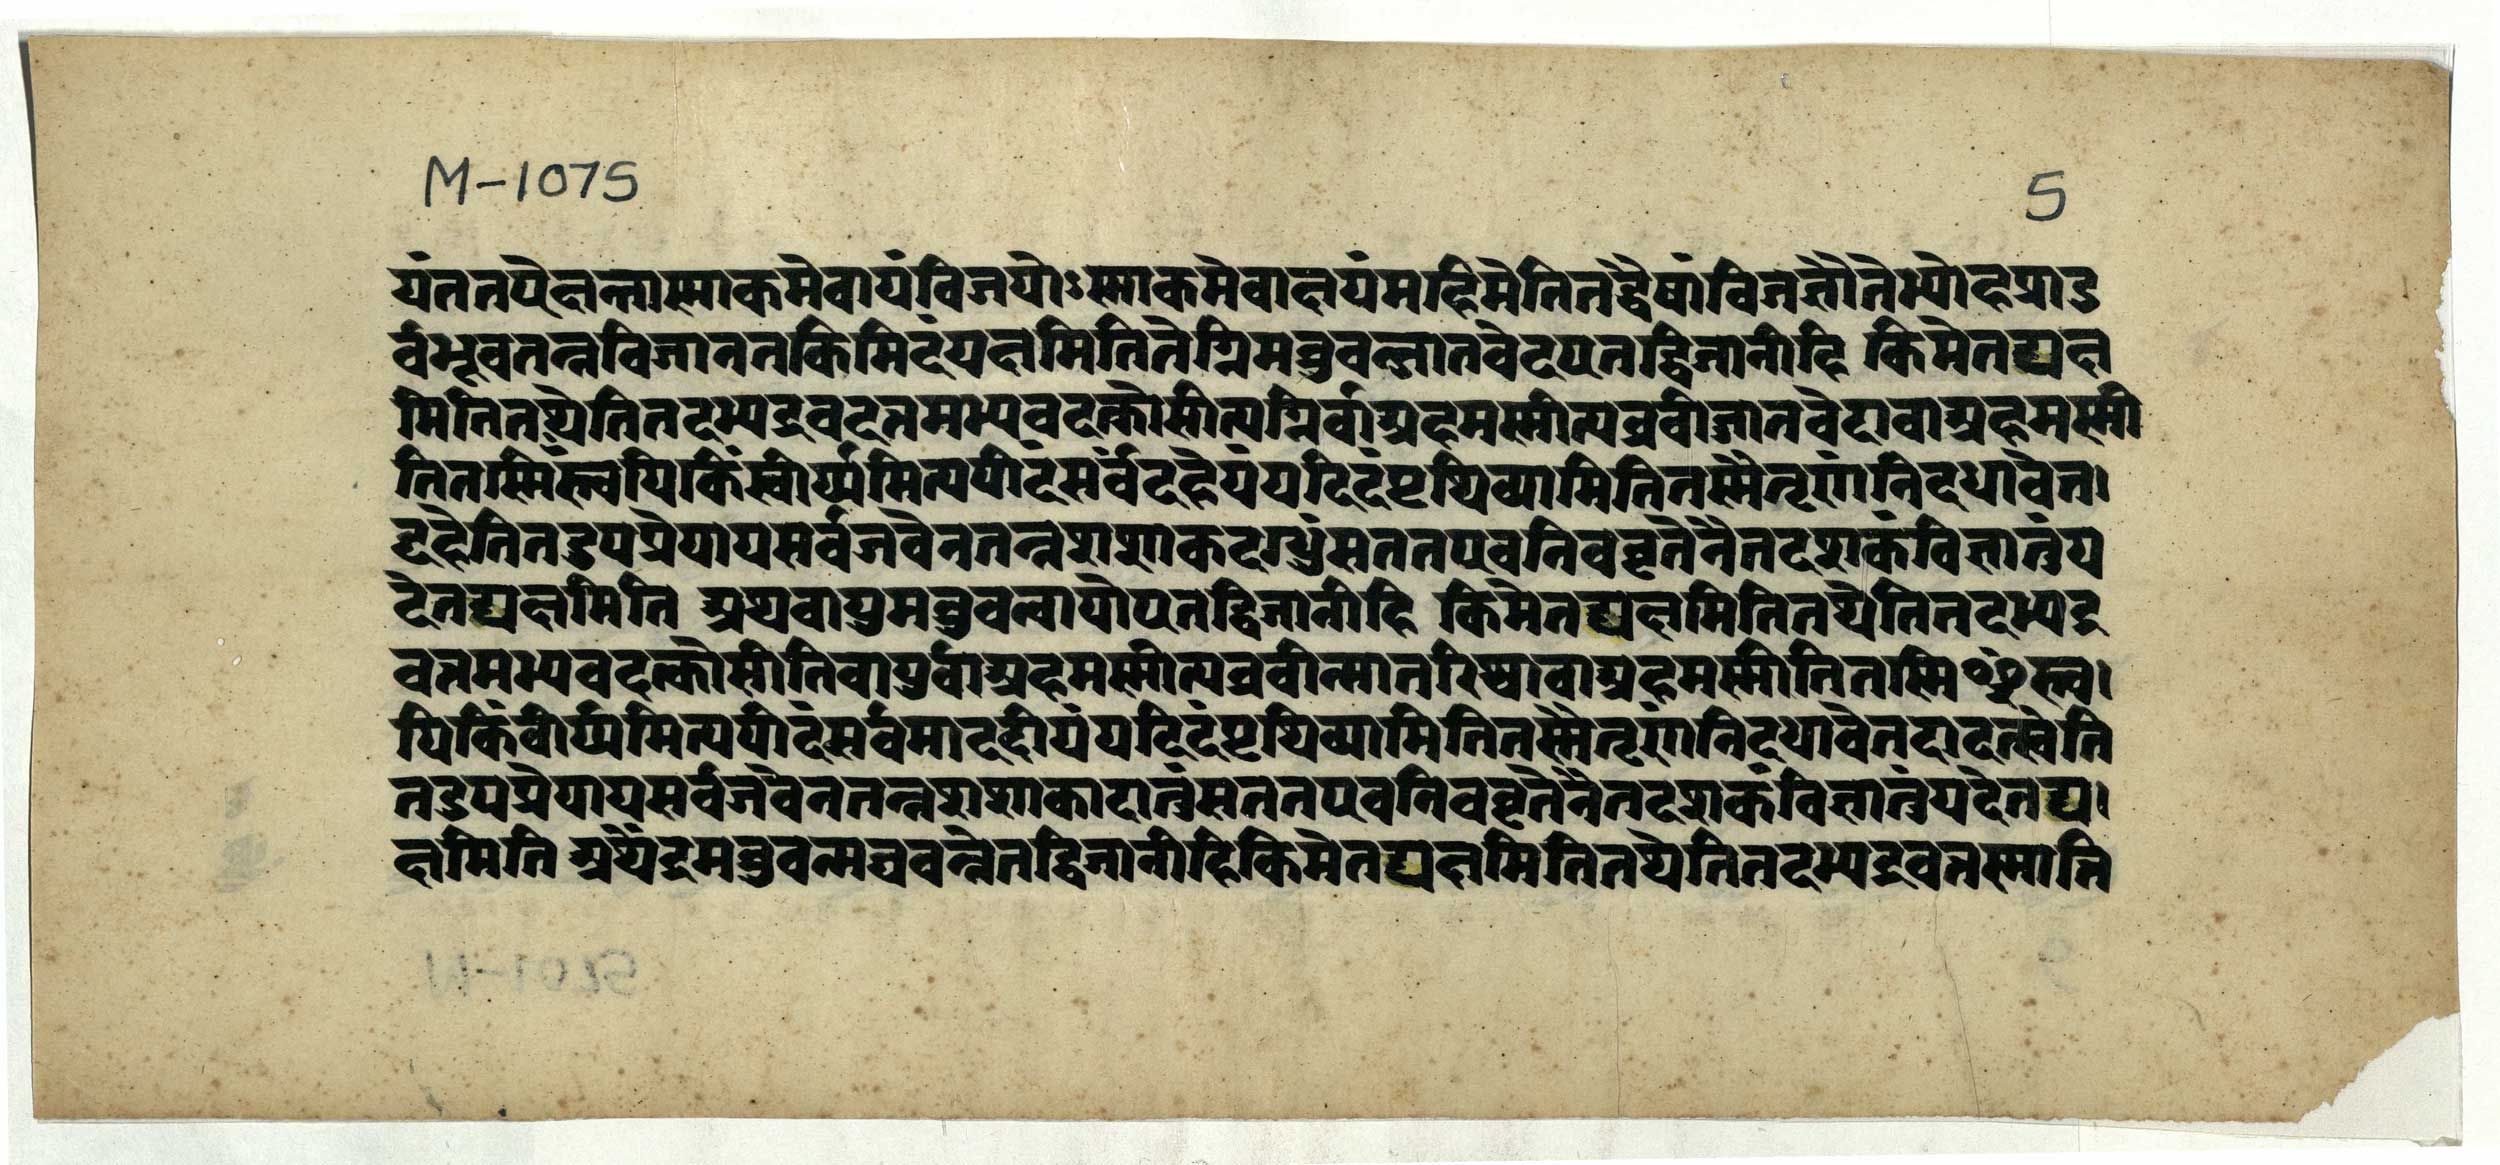 M-1075
5
यंततपैक्षन्तास्माकमेवायंविजयोऽस्माकमेवाक्षयंमहिमेतितद्धैषांविजज्ञौतेभ्योहप्राडु
र्वभूवतन्नविजाननतकिमिदंयक्षमितितेग्निमब्रुवञ्जातवेदपतद्विजानीहि किमेतद्यक्ष
मितितथेतितदभ्यद्रवदत्तमभ्यवदत्कोसीत्यग्निर्वाअहमस्मीत्यब्रवीज्जातवेदावाअहमस्मी
तितस्मिंस्त्वयिकिंस्वीर्यमित्यपीदंसर्वंदहेयंयदिदंपृथिव्यामितितस्मैतृणंनिदधावेत।
द्दहेतितडुपप्रेयायसर्वजवेनतन्नशशाकदग्धुंसततपवनिववृतेनैतदशकंविज्ञातुंय
देतद्यक्षमिति अथवायुमब्रुवन्वायोपतद्विजानीहि किमेतद्यक्षमितितथेतितदभ्यद्र
वत्तमभ्यवदत्कोसीतिवायुर्वाअहमस्मीत्यब्रवीन्मातरिश्वावाअहमस्मीतितस्मिꣳस्त्व।
यिकिंवीर्यमित्यपीदंसर्वमाददीयंयदिदंपृथिव्यामितितस्मैतृणंनिदधावेतदादत्स्वेति
तडुपप्रेयायसर्वजवेनतन्नशशाकादातुंसततपवनिववृतेनैतदशकंविज्ञातुंयदेतद्य।
क्षमिति अथेंद्रमब्रुवन्मघवन्नेतद्विजानीहिकिमेतद्यक्षमितितथेतितदभ्यद्रवत्तस्मात्ति